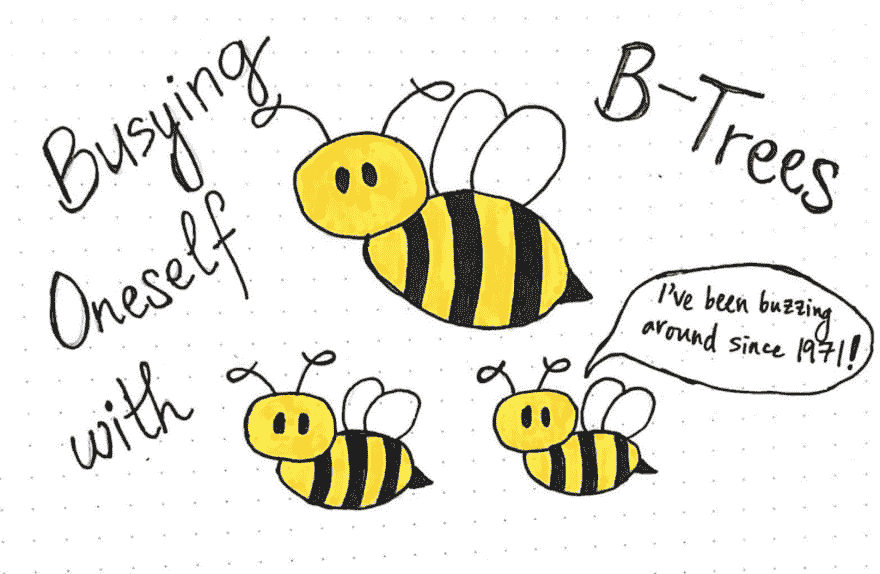 Busying
Oneself
with
B-Trees
I've been buzzing
around since 1971!